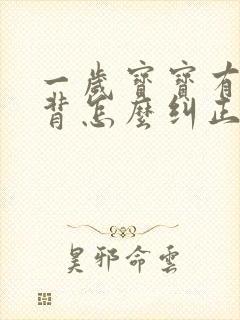 一歲寶寶有
背怎麼糾正
昊邪命雲